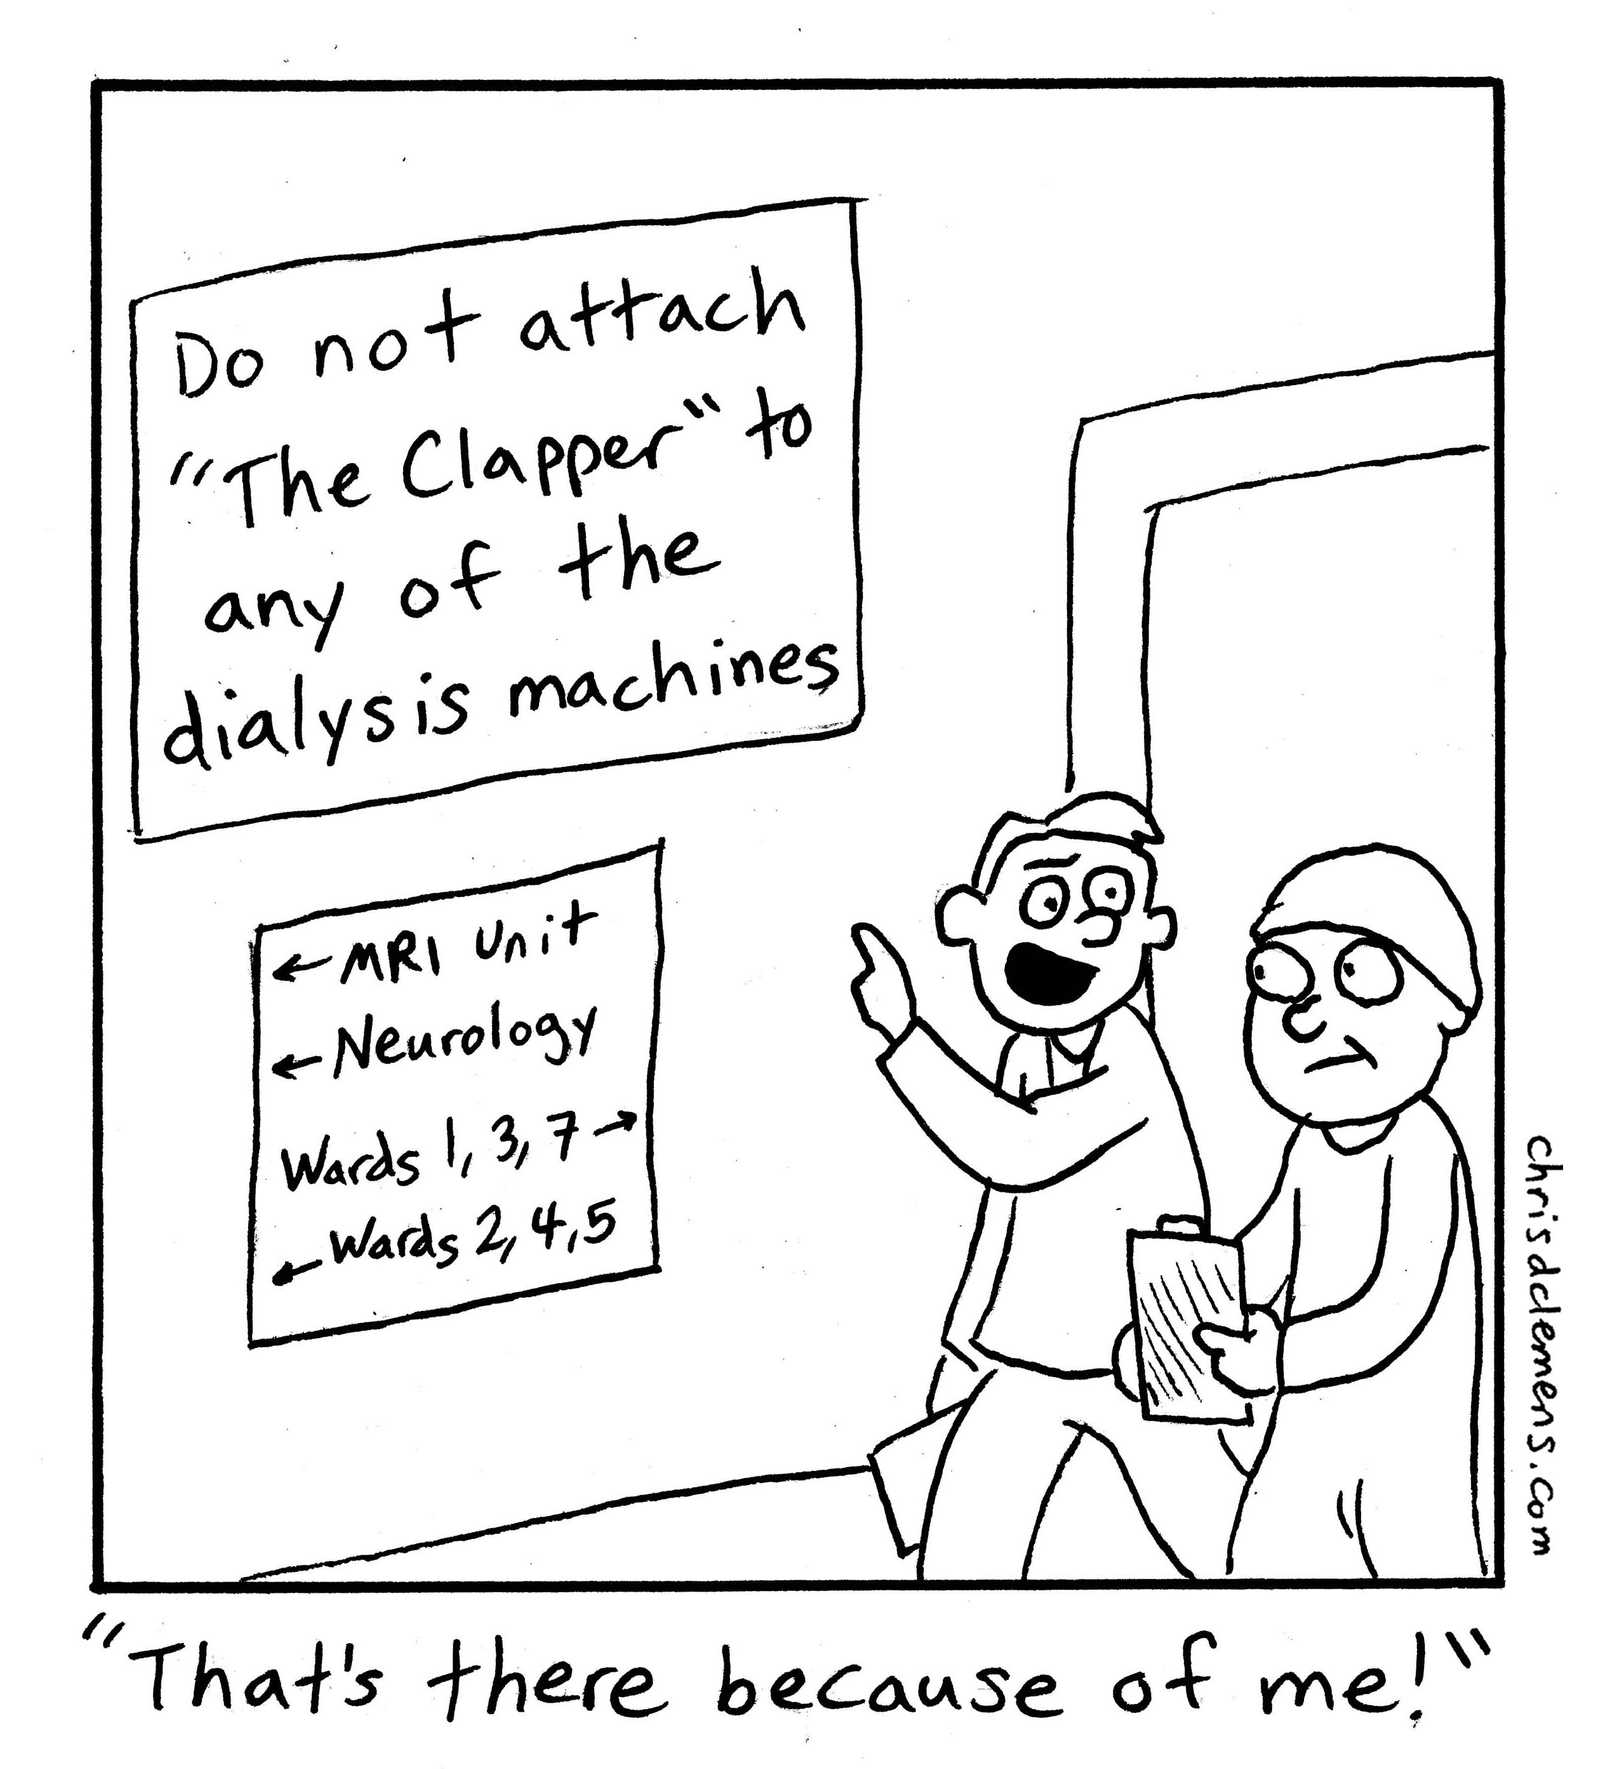 Do not attach
"The Clapper" to
any of the
dialysis machines
← MRI Unit
← Neurology
Wards 1, 3, 7 →
← Wards 2, 4, 5
chrisdclemens.com
"That's there because of me!"